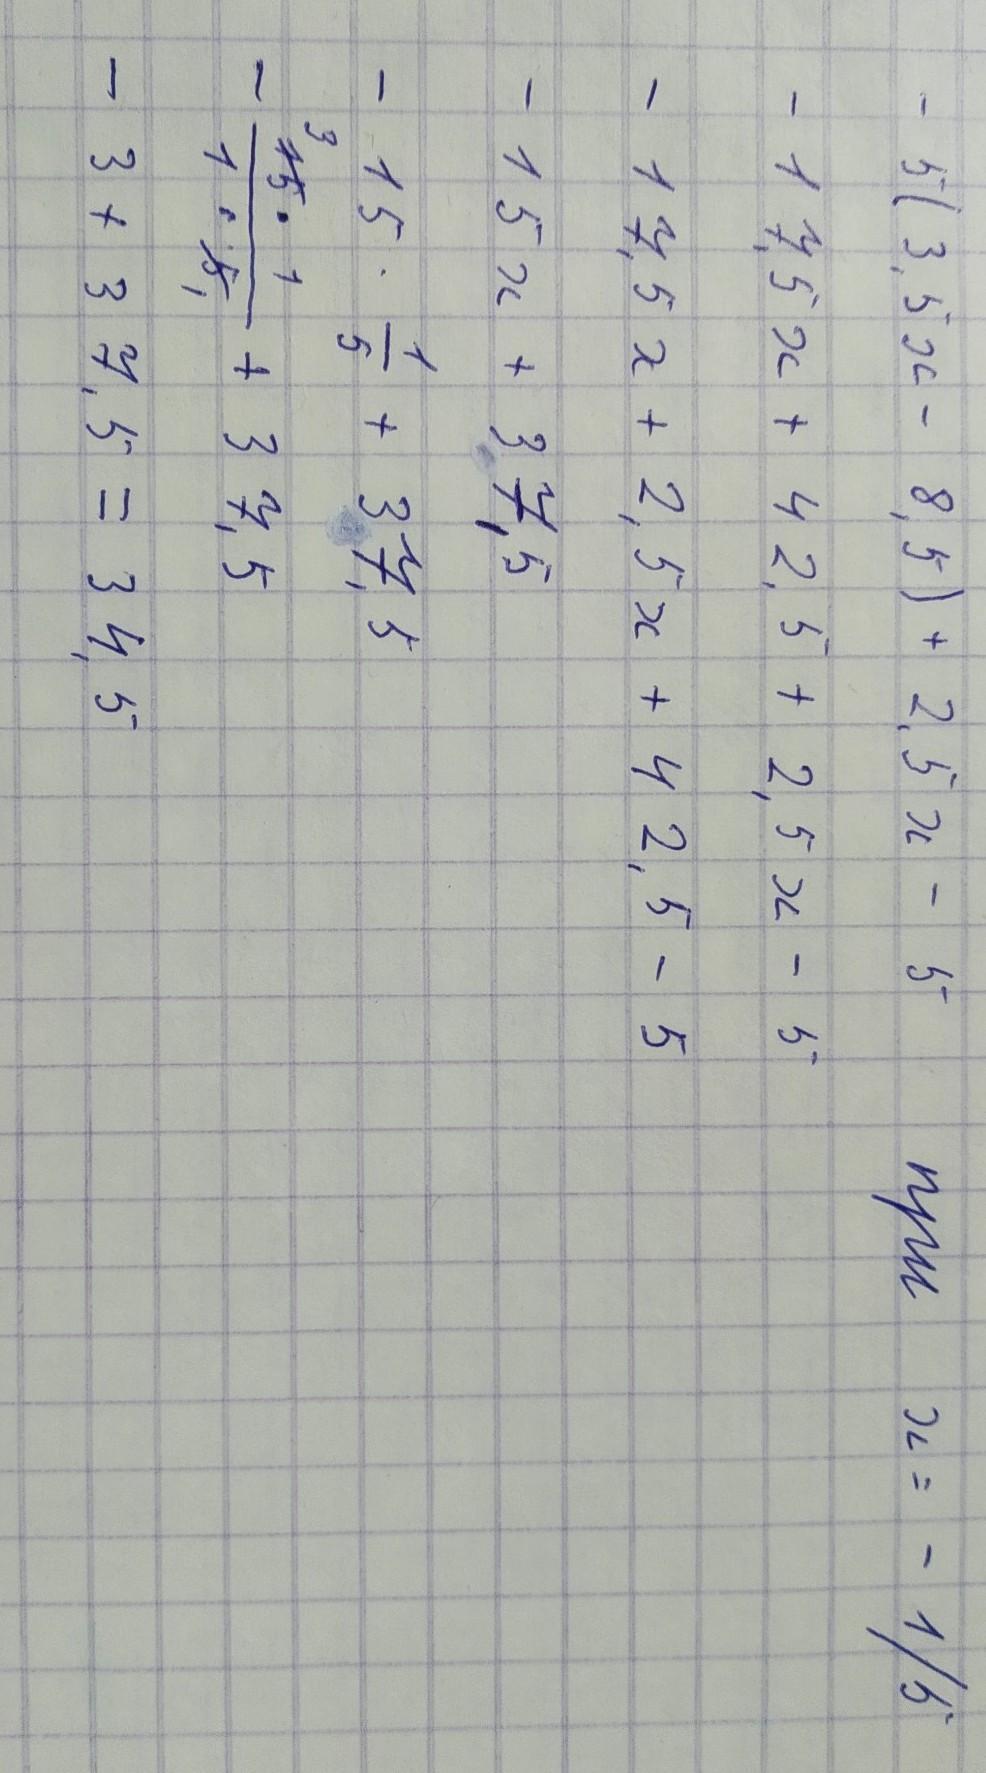 - 5(3,5x - 8,5) + 2,5x - 5 при x = - 1/5
- 17,5x + 42,5 + 2,5x - 5
- 17,5x + 2,5x + 42,5 - 5
- 15x + 37,5
- 15 · 1/5 + 37,5
- 3 15 · 1 / 1 · 5 1 + 37,5
- 3 + 37,5 = 34,5